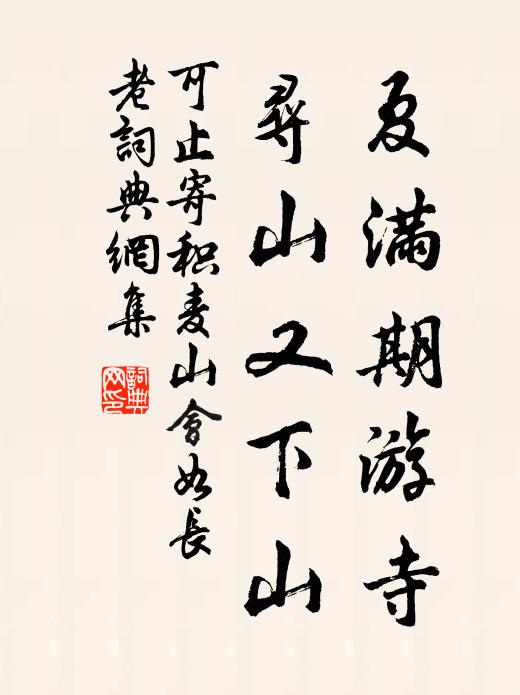 夏满期游寺
尋山又下山
可止寄积麦山會如長
老詞典網集
詞典網印